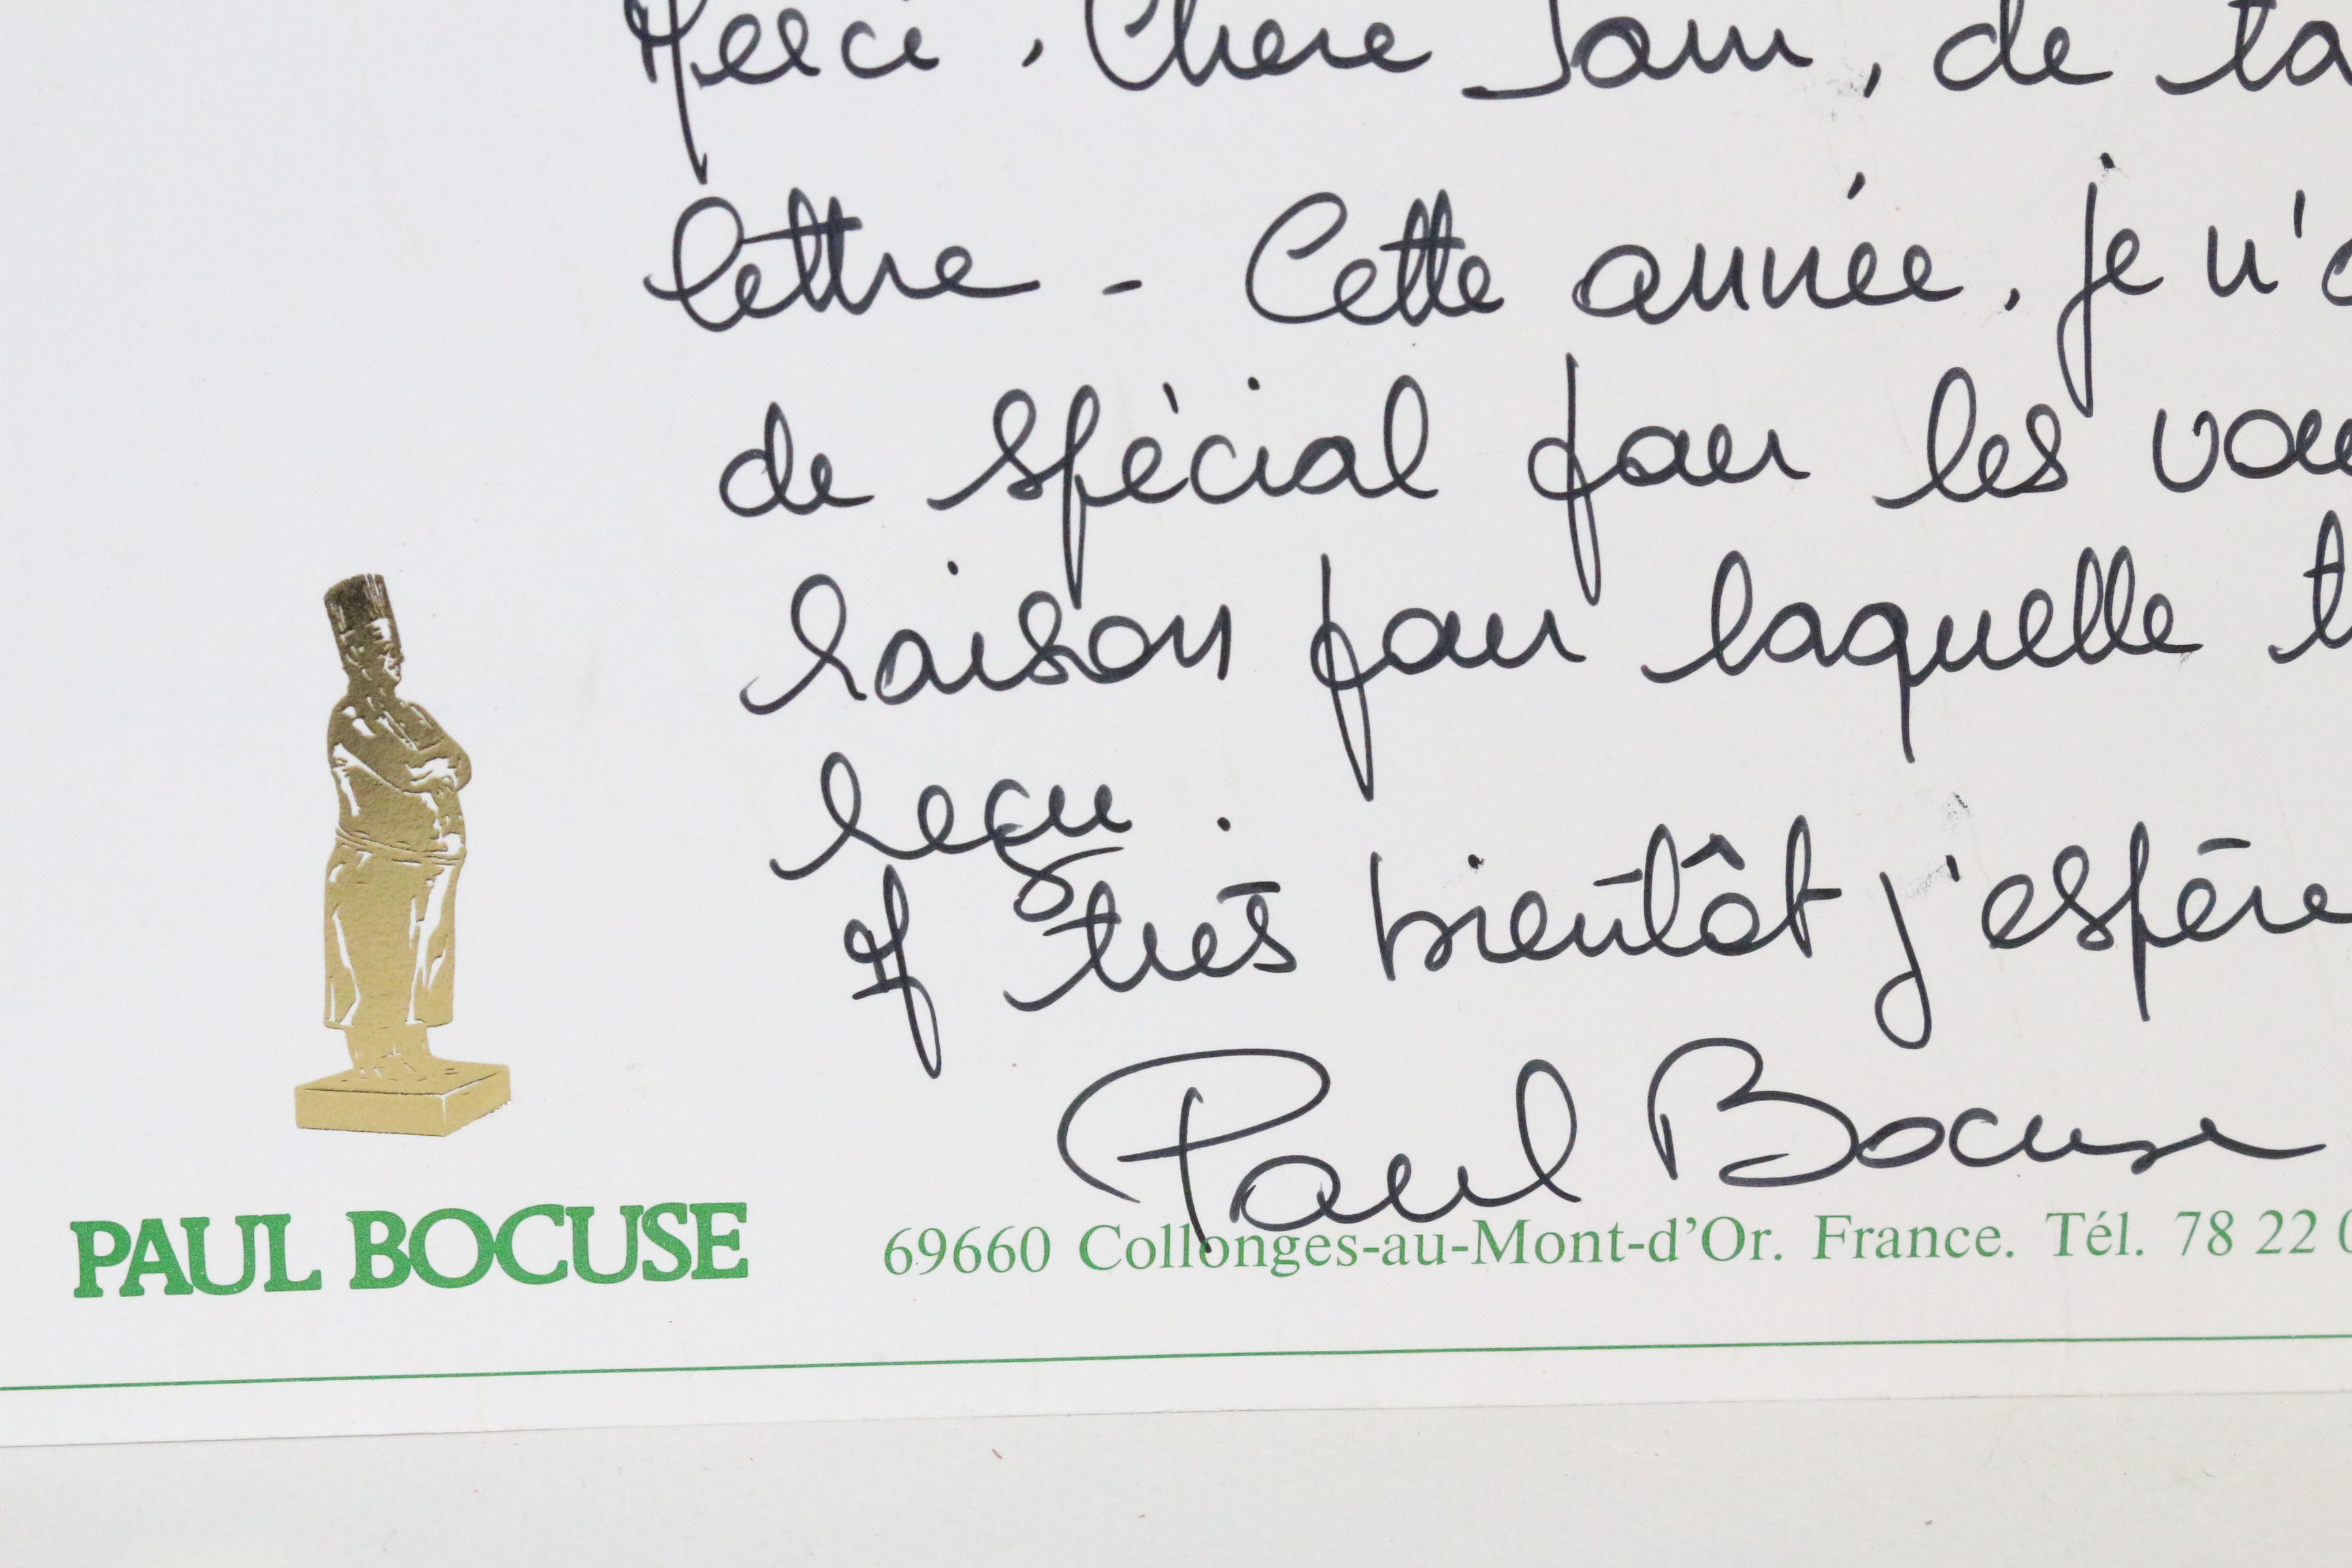 Merci, Chère Sam, de ta
lettre - Cette année, je n'
de spécial pour les
raison pour laquelle
reçu.
A très bientôt j'espère
Paul Bocuse
PAUL BOCUSE 69660 Collonges-au-Mont-d'Or. France. Tél. 78 22 0